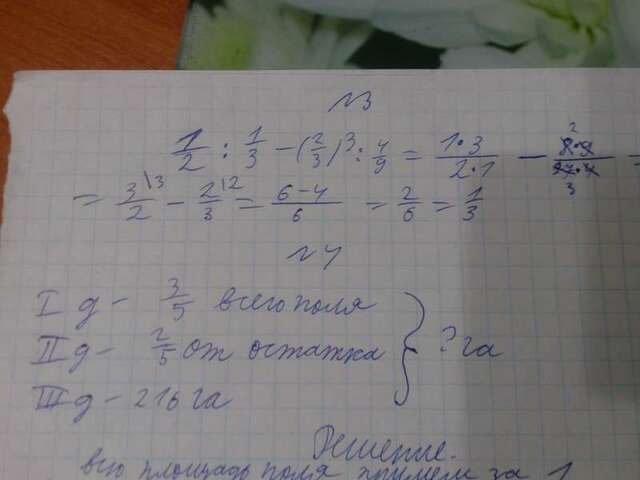 №3
1/2 : 1/3 - (2/3)³ : 4/9 = 1·3/2·1 - 8·9/27·4 =
= 3/2 - 2/3 = 6-4/6 = 2/6 = 1/3
№4
I д - 3/5 всего поля
II д - 2/5 от остатка } ? га
III д - 216 га
Решение.
всю площадь поля примем за 1